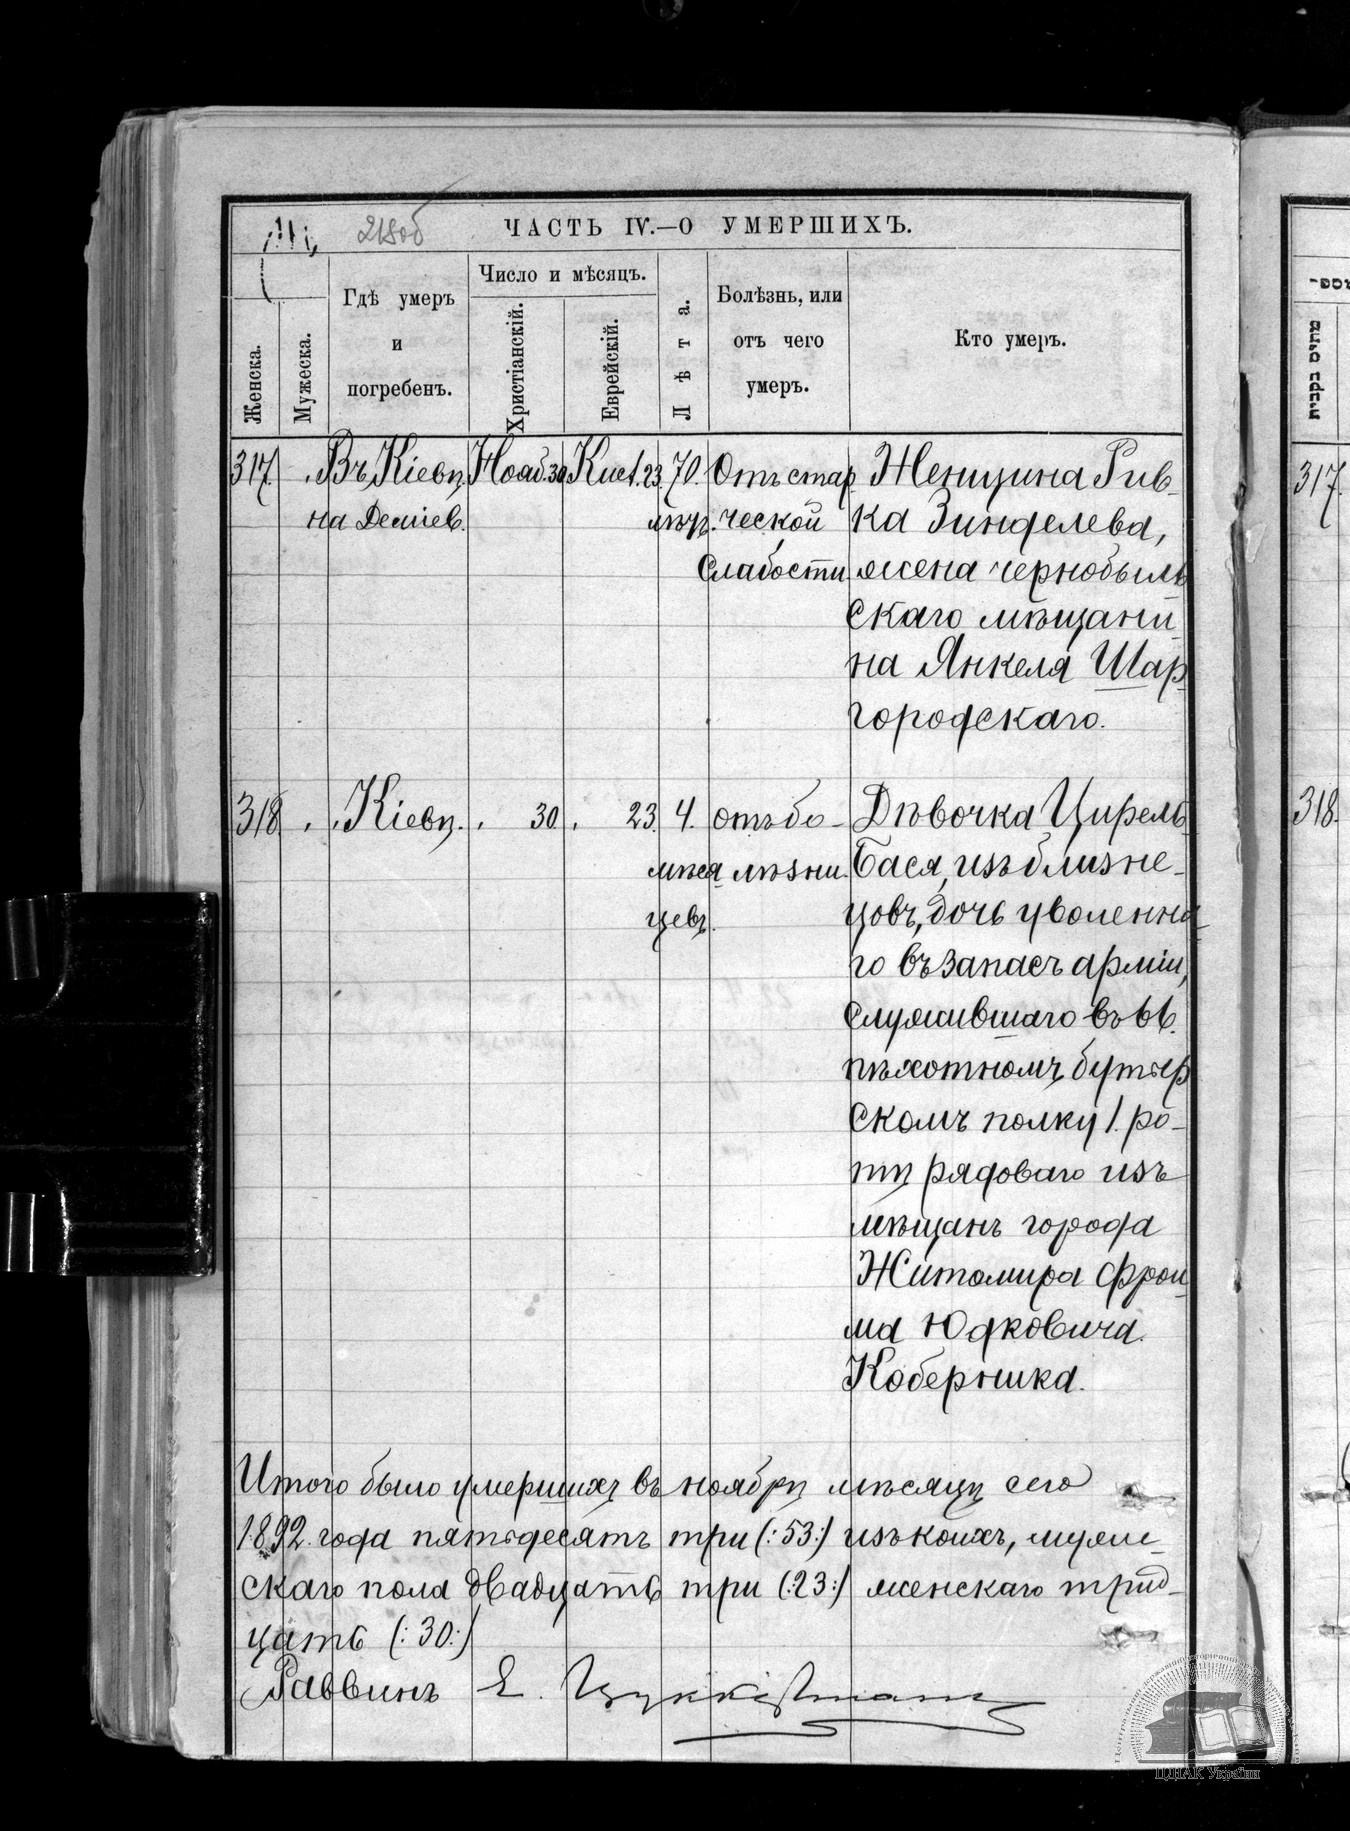 218об
ЧАСТЬ IV.—О УМЕРШИХЪ.
Женска.
Мужеска.
Гдѣ умеръ
и
погребенъ.
Число и мѣсяцъ.
Христіанскій.
Еврейскій.
Лѣта.
Болѣзнь, или
отъ чего
умеръ.
Кто умеръ.
317. Въ Кіевѣ Нояб. 30 Кисл. 23. 70. Отъ стар Женщина Рив-
на Деміев. лѣтъ. ческой ка Зинделева,
слабости жена чернобыль
скаго мѣщани-
на Янкеля Шар-
городскаго.
318 Кіевѣ. 30. 23. 4. отъ бо- Дѣвочка Цирель
мѣся лѣзни. Бася, изъ близне-
цевъ. цовъ, дочь уволенна-
го въ запасъ арміи,
служившаго въ 66.
пѣхотномъ бутыр
скомъ полку 1. ро-
ты рядоваго изъ
мѣщанъ города
Житомира Фрои-
ма Юдковича
Коберника.
Итого было умершихъ въ ноябрѣ мѣсяцѣ сего
1892 года пятьдесятъ три (:53:) изъ коихъ, муже-
скаго пола двадцать три (:23:) женскаго трид-
цать (:30:)
Раввинъ Е. Цуккерманъ
317.
318.
ЦДІАК України